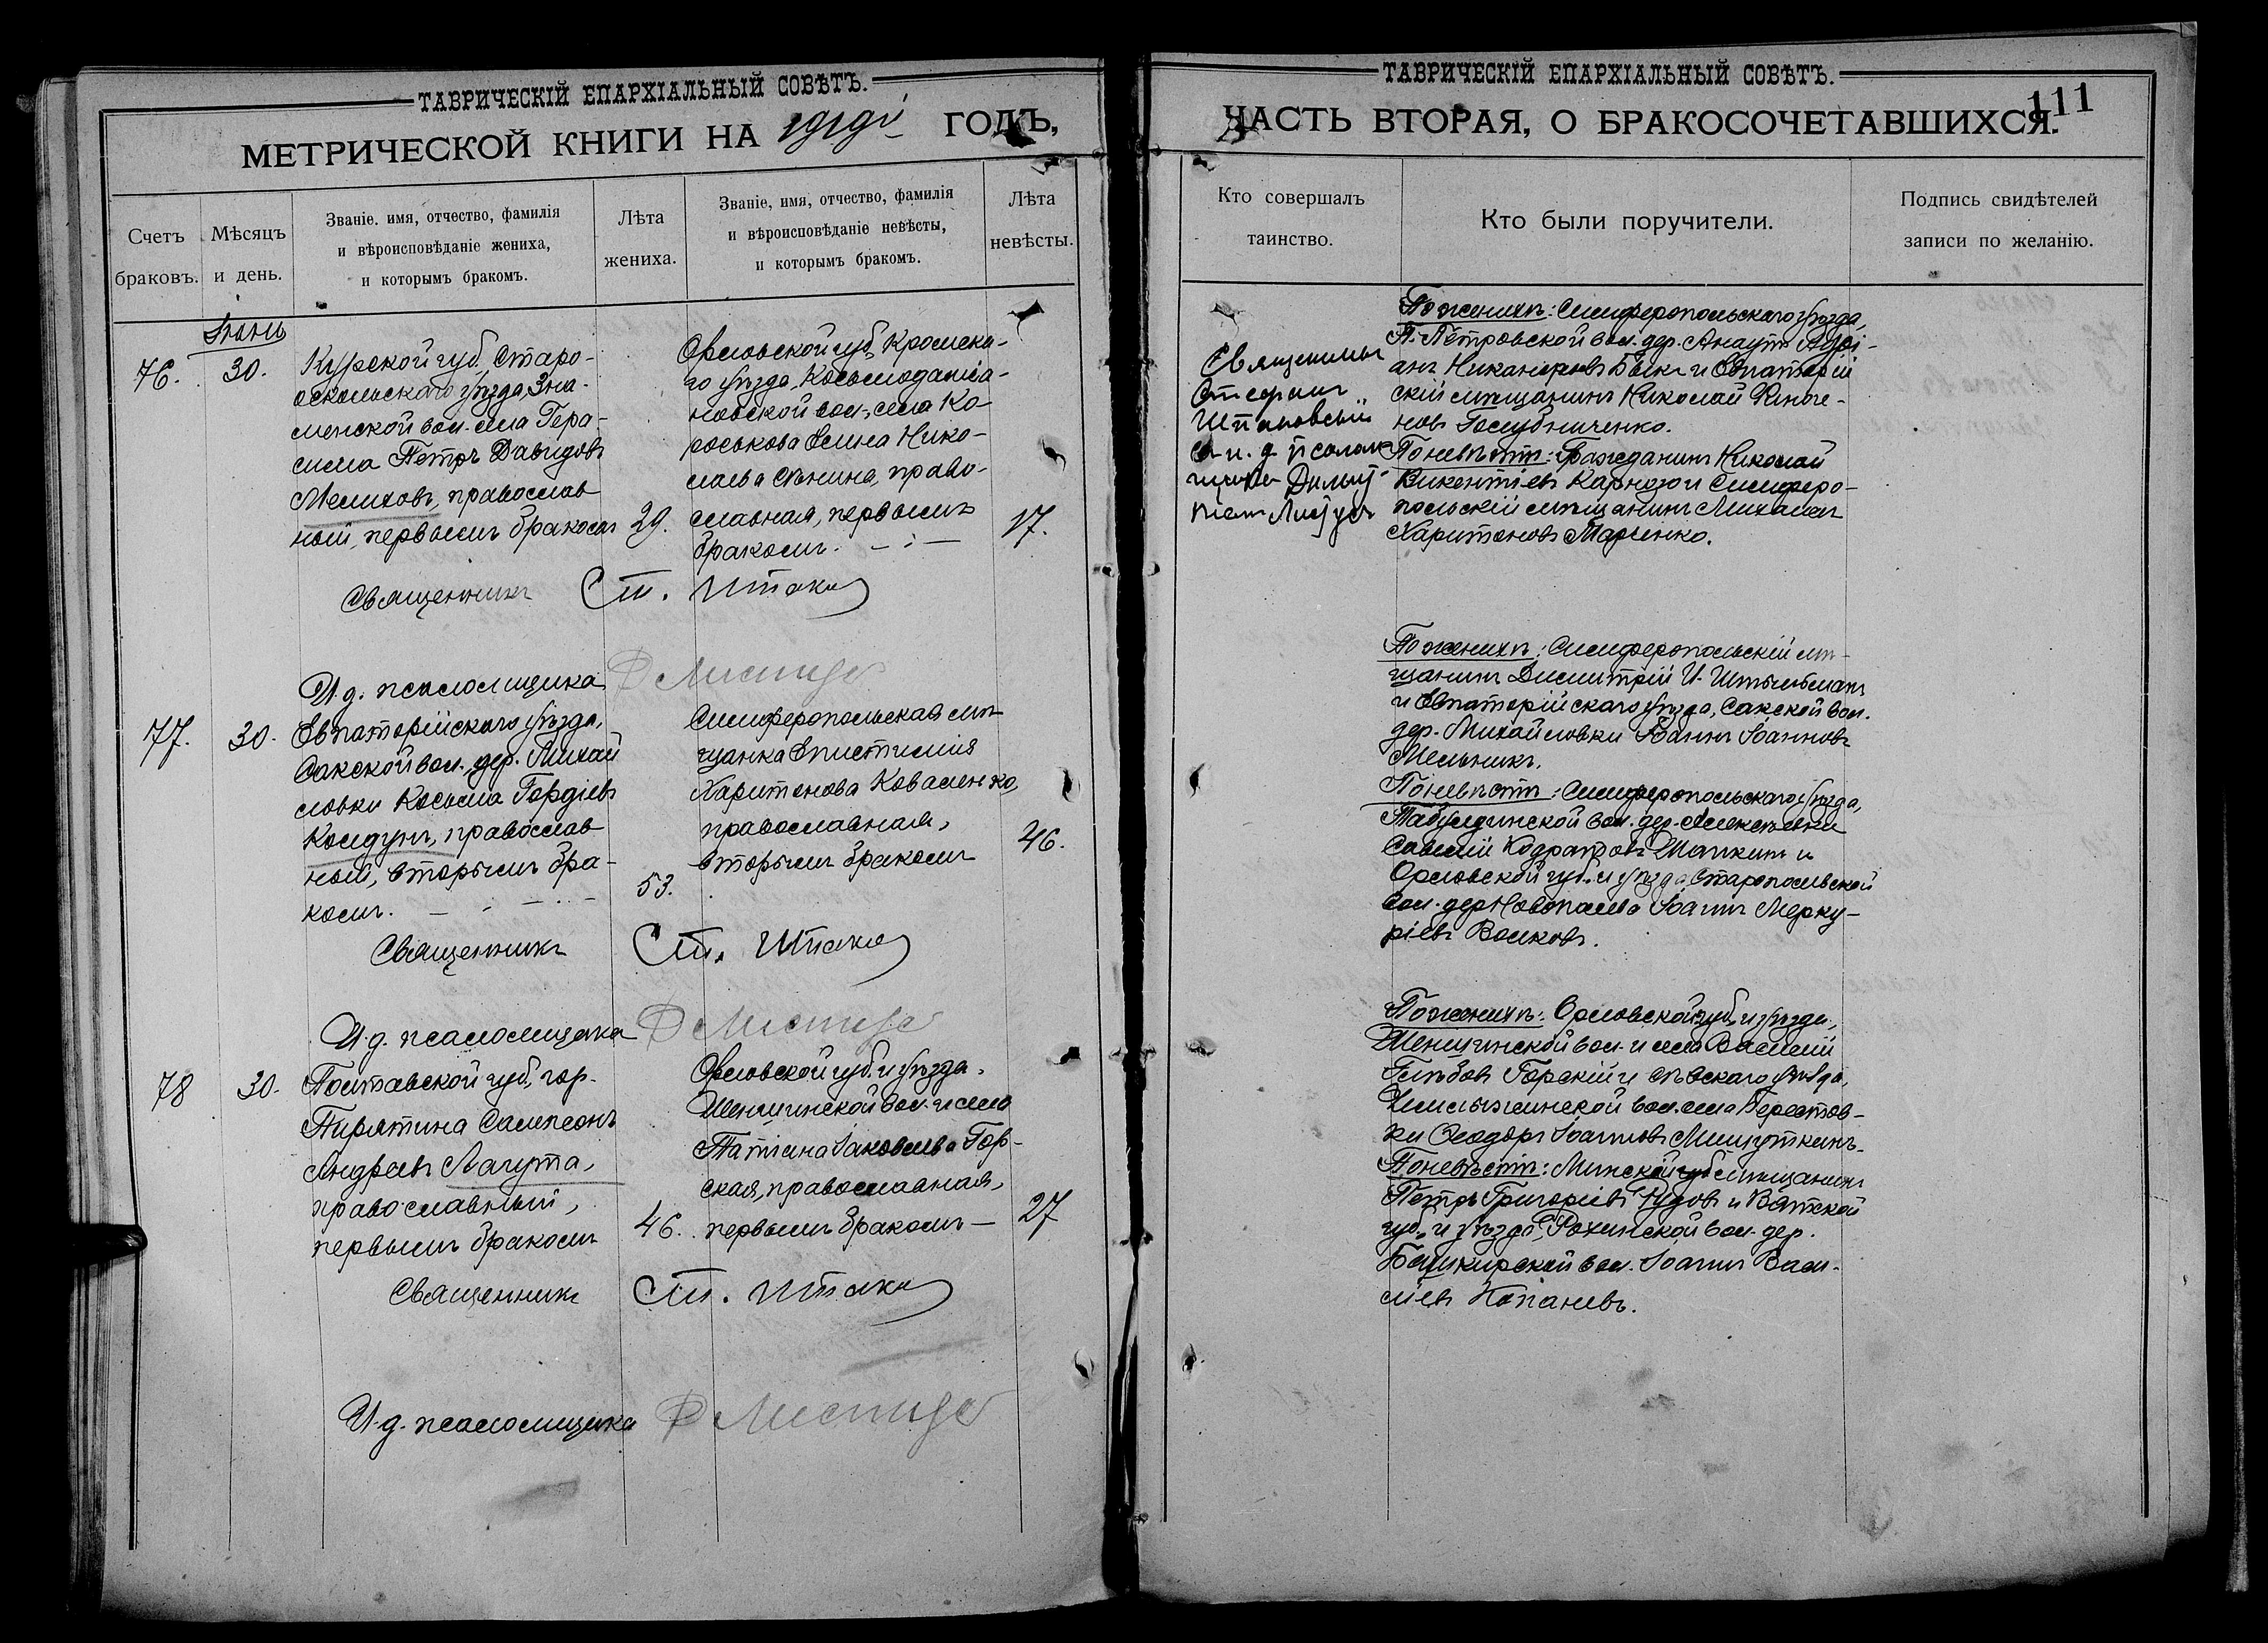 ТАВРИЧЕСКІЙ ЕПАРХІАЛЬНЫЙ СОВѢТЪ.
МЕТРИЧЕСКОЙ КНИГИ НА 1919й ГОДЪ,
Счетъ браковъ.
Мѣсяцъ и день.
Званіе, имя, отчество, фамилія
и вѣроисповѣданіе жениха,
и которымъ бракомъ.
Лѣта жениха.
Званіе, имя, отчество, фамилія
и вѣроисповѣданіе невѣсты,
и которымъ бракомъ.
Лѣта невѣсты.
Іюнь
76.
30.
Курской губ. Старо-
оскольскаго уѣзда, Зна-
менской вол. села Гера-
сима Петръ Давидовъ
Мелиховъ, православ
ный, первымъ бракомъ
29.
Орловской губ. Кромска-
го уѣзда, Косьмодаміа-
новской вол., села Ко-
роськова Елена Нико-
лаева, право-
славная, первымъ
бракомъ.
17.
Священникъ Ст. Штаке
И.д. псаломщика Д Листуе
77.
30.
Евпаторійскаго уѣзда,
Сакской вол. дер. Михай
ловки Косьма Гордіевъ
Колдунъ, православ
ный, вторымъ бра-
комъ.
53.
Симферопольская мѣ
щанка Епистимія
Харитонова Коваленко,
православная,
вторымъ бракомъ
46.
Священникъ Ст. Штаке
И.д. псаломщика Д Листуе
78
30.
Полтавской губ. гор.
Пирятина Сампсонъ
Андреевъ Лагута,
православный,
первымъ бракомъ
46.
Орловской губ. и уѣзда,
вол. и села
Татіана Іаковлева Гор-
ская, православная,
первымъ бракомъ —
27
Священникъ Ст. Штаке
И.д. псаломщика Д Листуе
ТАВРИЧЕСКІЙ ЕПАРХІАЛЬНЫЙ СОВѢТЪ.
111
ЧАСТЬ ВТОРАЯ, О БРАКОСОЧЕТАВШИХСЯ.
Кто совершалъ таинство.
Кто были поручители.
Подпись свидѣтелей
записи по желанію.
Священникъ
Стефанъ
с и. д. псалом
щика Дими
По женихѣ: Симферопольскаго уѣзда,
П.-Петровской вол. дер. Анаутъ Адрі-
анъ Никаноровъ Быкъ и Евпаторій
скій мѣщанинъ Николай
новъ Голубниченко.
По невѣстѣ: Гражданинъ Николай
Викентіевъ и Симферо-
польскій мѣщанинъ Михаилъ
Харитоновъ Марченко.
По женихѣ: Симферопольскій мѣ-
щанинъ Димитрій И.
и Евпаторійскаго уѣзда, Сакской вол.
дер. Михайловки Іоаннъ Іоанновъ
Мельникъ.
По невѣстѣ: Симферопольскаго уѣзда,
Табулдинской вол. дер. Алексѣевки
Савелій Кодратовъ Шапкинъ и
Орловской губ. и уѣзда,
вол. дер. Іоаннъ Мерку-
ріевъ Волковъ.
По женихѣ: Орловской губ. и уѣзда,
вол. и села Василій
Глѣбовъ Горскій и Сѣвскаго уѣзда,
вол. села Берестов-
ки Ѳеодоръ Іоанновъ Мишуткинъ.
По невѣстѣ: Минской губ. мѣщанинъ
Петръ Григоріевъ и Вятской
губ. и уѣзда, вол. дер.
Башкирской вол. Іоаннъ Васи-
ліевъ Копаневъ.